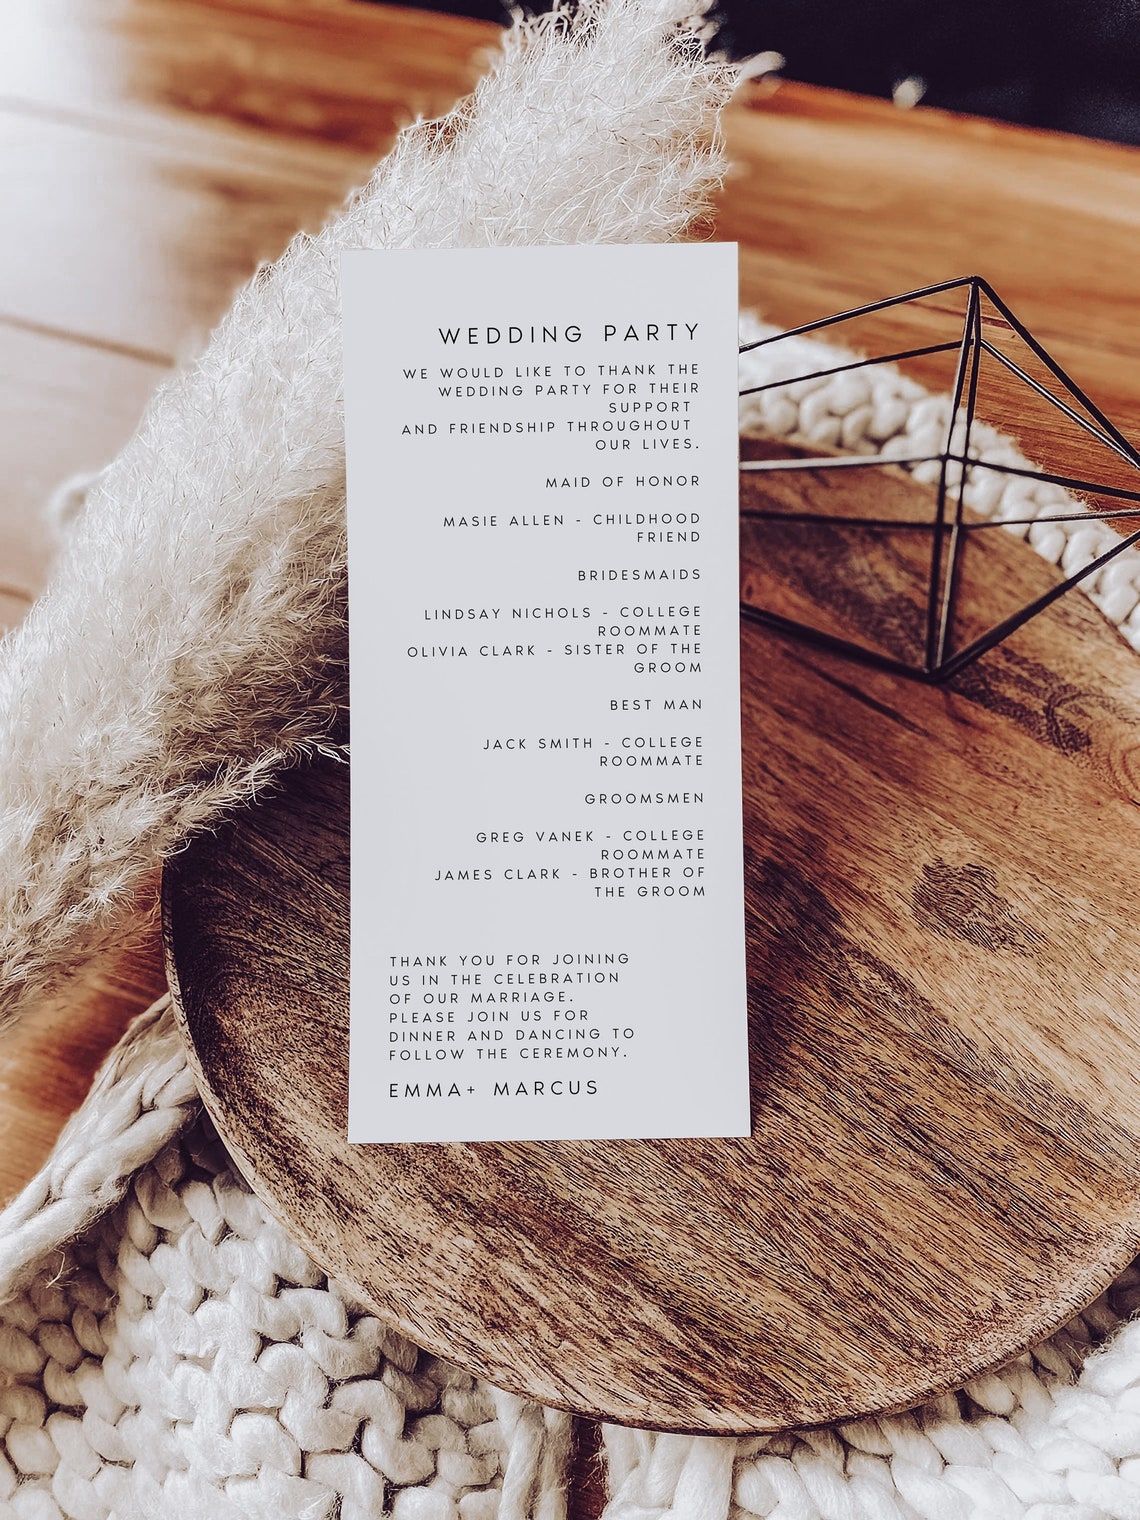 WEDDING PARTY
WE WOULD LIKE TO THANK THE
WEDDING PARTY FOR THEIR
SUPPORT
AND FRIENDSHIP THROUGHOUT
OUR LIVES.
MAID OF HONOR
MASIE ALLEN - CHILDHOOD
FRIEND
BRIDESMAIDS
LINDSAY NICHOLS - COLLEGE
ROOMMATE
OLIVIA CLARK - SISTER OF THE
GROOM
BEST MAN
JACK SMITH - COLLEGE
ROOMMATE
GROOMSMEN
GREG VANEK - COLLEGE
ROOMMATE
JAMES CLARK - BROTHER OF
THE GROOM
THANK YOU FOR JOINING
US IN THE CELEBRATION
OF OUR MARRIAGE.
PLEASE JOIN US FOR
DINNER AND DANCING TO
FOLLOW THE CEREMONY.
EMMA+ MARCUS